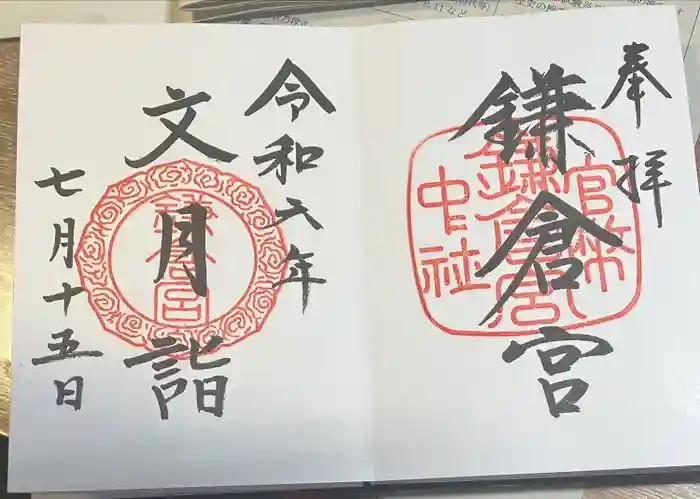 奉拝
鎌倉宮
官幣
鎌倉宮
中社
令和六年
文月詣
鎌倉宮
七月十五日